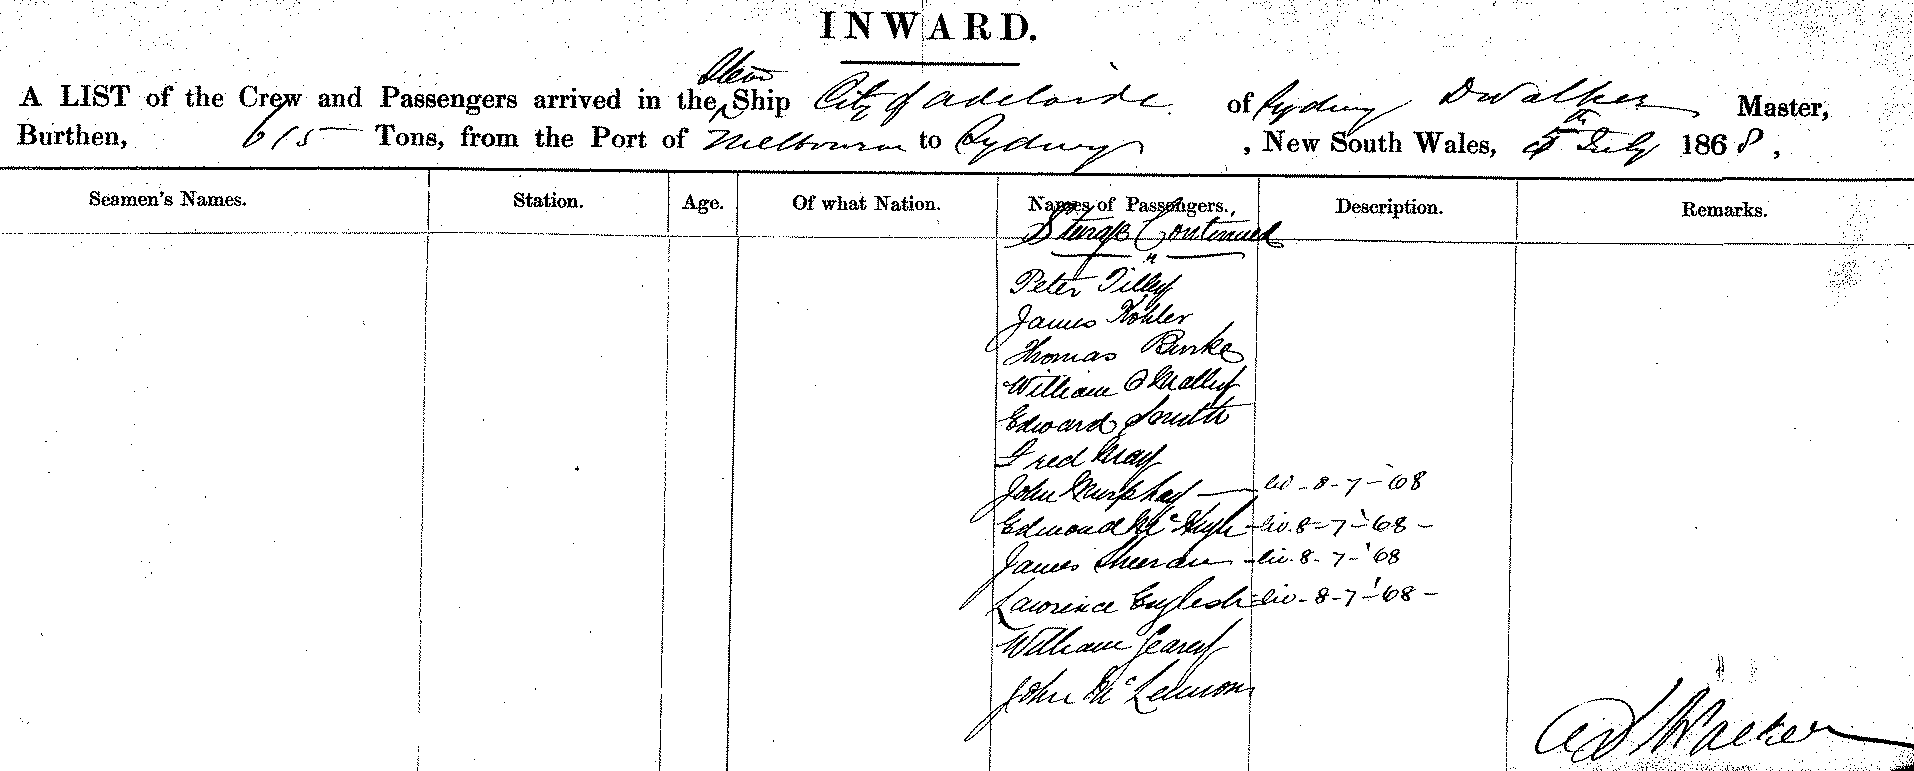 INWARD.
Steam
A LIST of the Crew and Passengers arrived in the Ship City of Adelaide of Sydney D Walker Master,
Burthen, 615 Tons, from the Port of Melbourne to Sydney , New South Wales, 5th July 1868,
Seamen's Names. Station. Age. Of what Nation. Names of Passengers. Description. Remarks.
Continued
"
Peter Tilly
James Kohler
Thomas Burke
William O'Mally
Edward Smith
Fred May
John Murphay 8-7-'68
Edmond Mc Hugh 8-7-'68-
James Sheeran 8-7-'68
Lawrence English 8-7-'68-
William Geary
John Mc Lennon
Walker